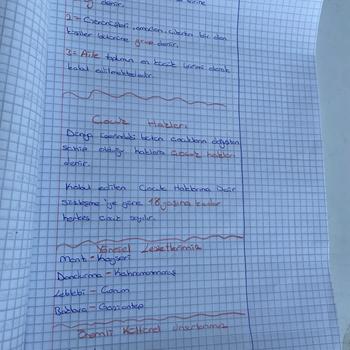 denir.
2- Çevresindeki insanlardan, ülkenin bir den
kişiler bütününe grup denir.
3- Aile toplumun en küçük birimi olarak
kabul edilmektedir.
Çocuk Hakları
Dünya üzerindeki bütün çocukların doğuştan
sahip olduğu haklara çocuk hakları
denir.
Kabul edilen Çocuk Haklarına Dair
Sözleşme'ye göre 18 yaşına kadar
herkes çocuk sayılır.
Yöresel Lezzetlerimiz
Mantı - Kayseri
Dondurma - Kahramanmaraş
Leblebi - Çorum
Baklava - Gaziantep
Önemli Kültürel Unsurlarımız